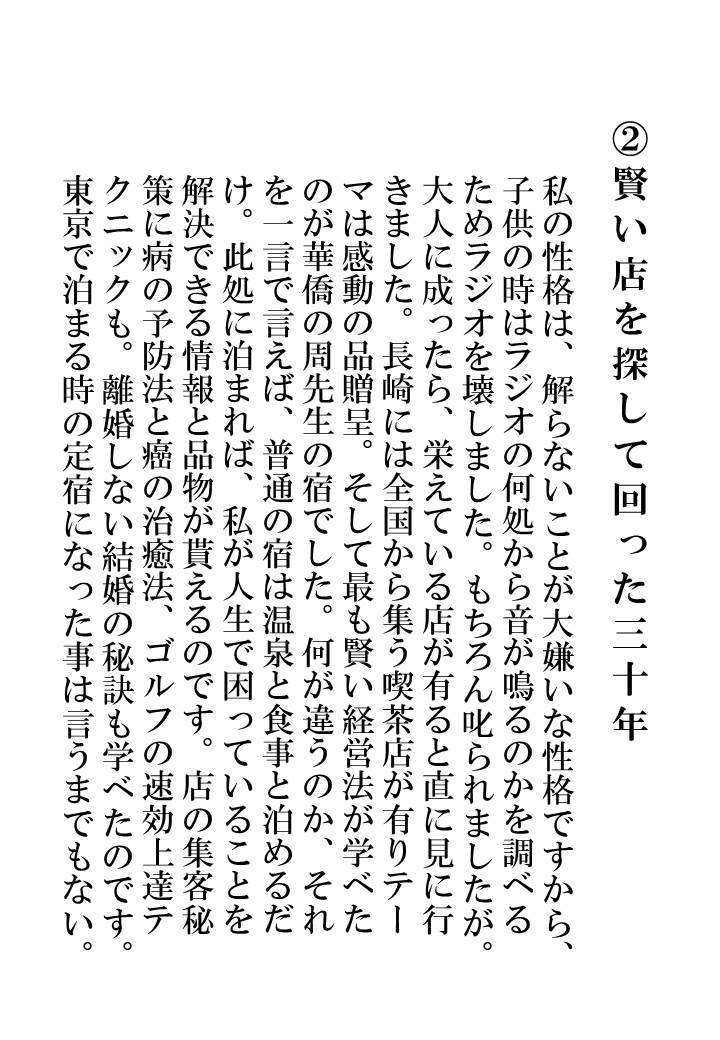 ②賢い店を探して回った三十年
私の性格は、解らないことが大嫌いな性格ですから、
子供の時はラジオの何処から音が鳴るのかを調べる
ためラジオを壊しました。もちろん叱られましたが。
大人に成ったら、栄えている店が有ると直に見に行
きました。長崎には全国から集う喫茶店が有りテー
マは感動の品贈呈。そして最も賢い経営法が学べた
のが華僑の周先生の宿でした。何が違うのか、それ
を一言で言えば、普通の宿は温泉と食事と泊めるだ
け。此処に泊まれば、私が人生で困っていることを
解決できる情報と品物が貰えるのです。店の集客秘
策に病の予防法と癌の治癒法、ゴルフの速効上達テ
クニックも。離婚しない結婚の秘訣も学べたのです。
東京で泊まる時の定宿になった事は言うまでもない。